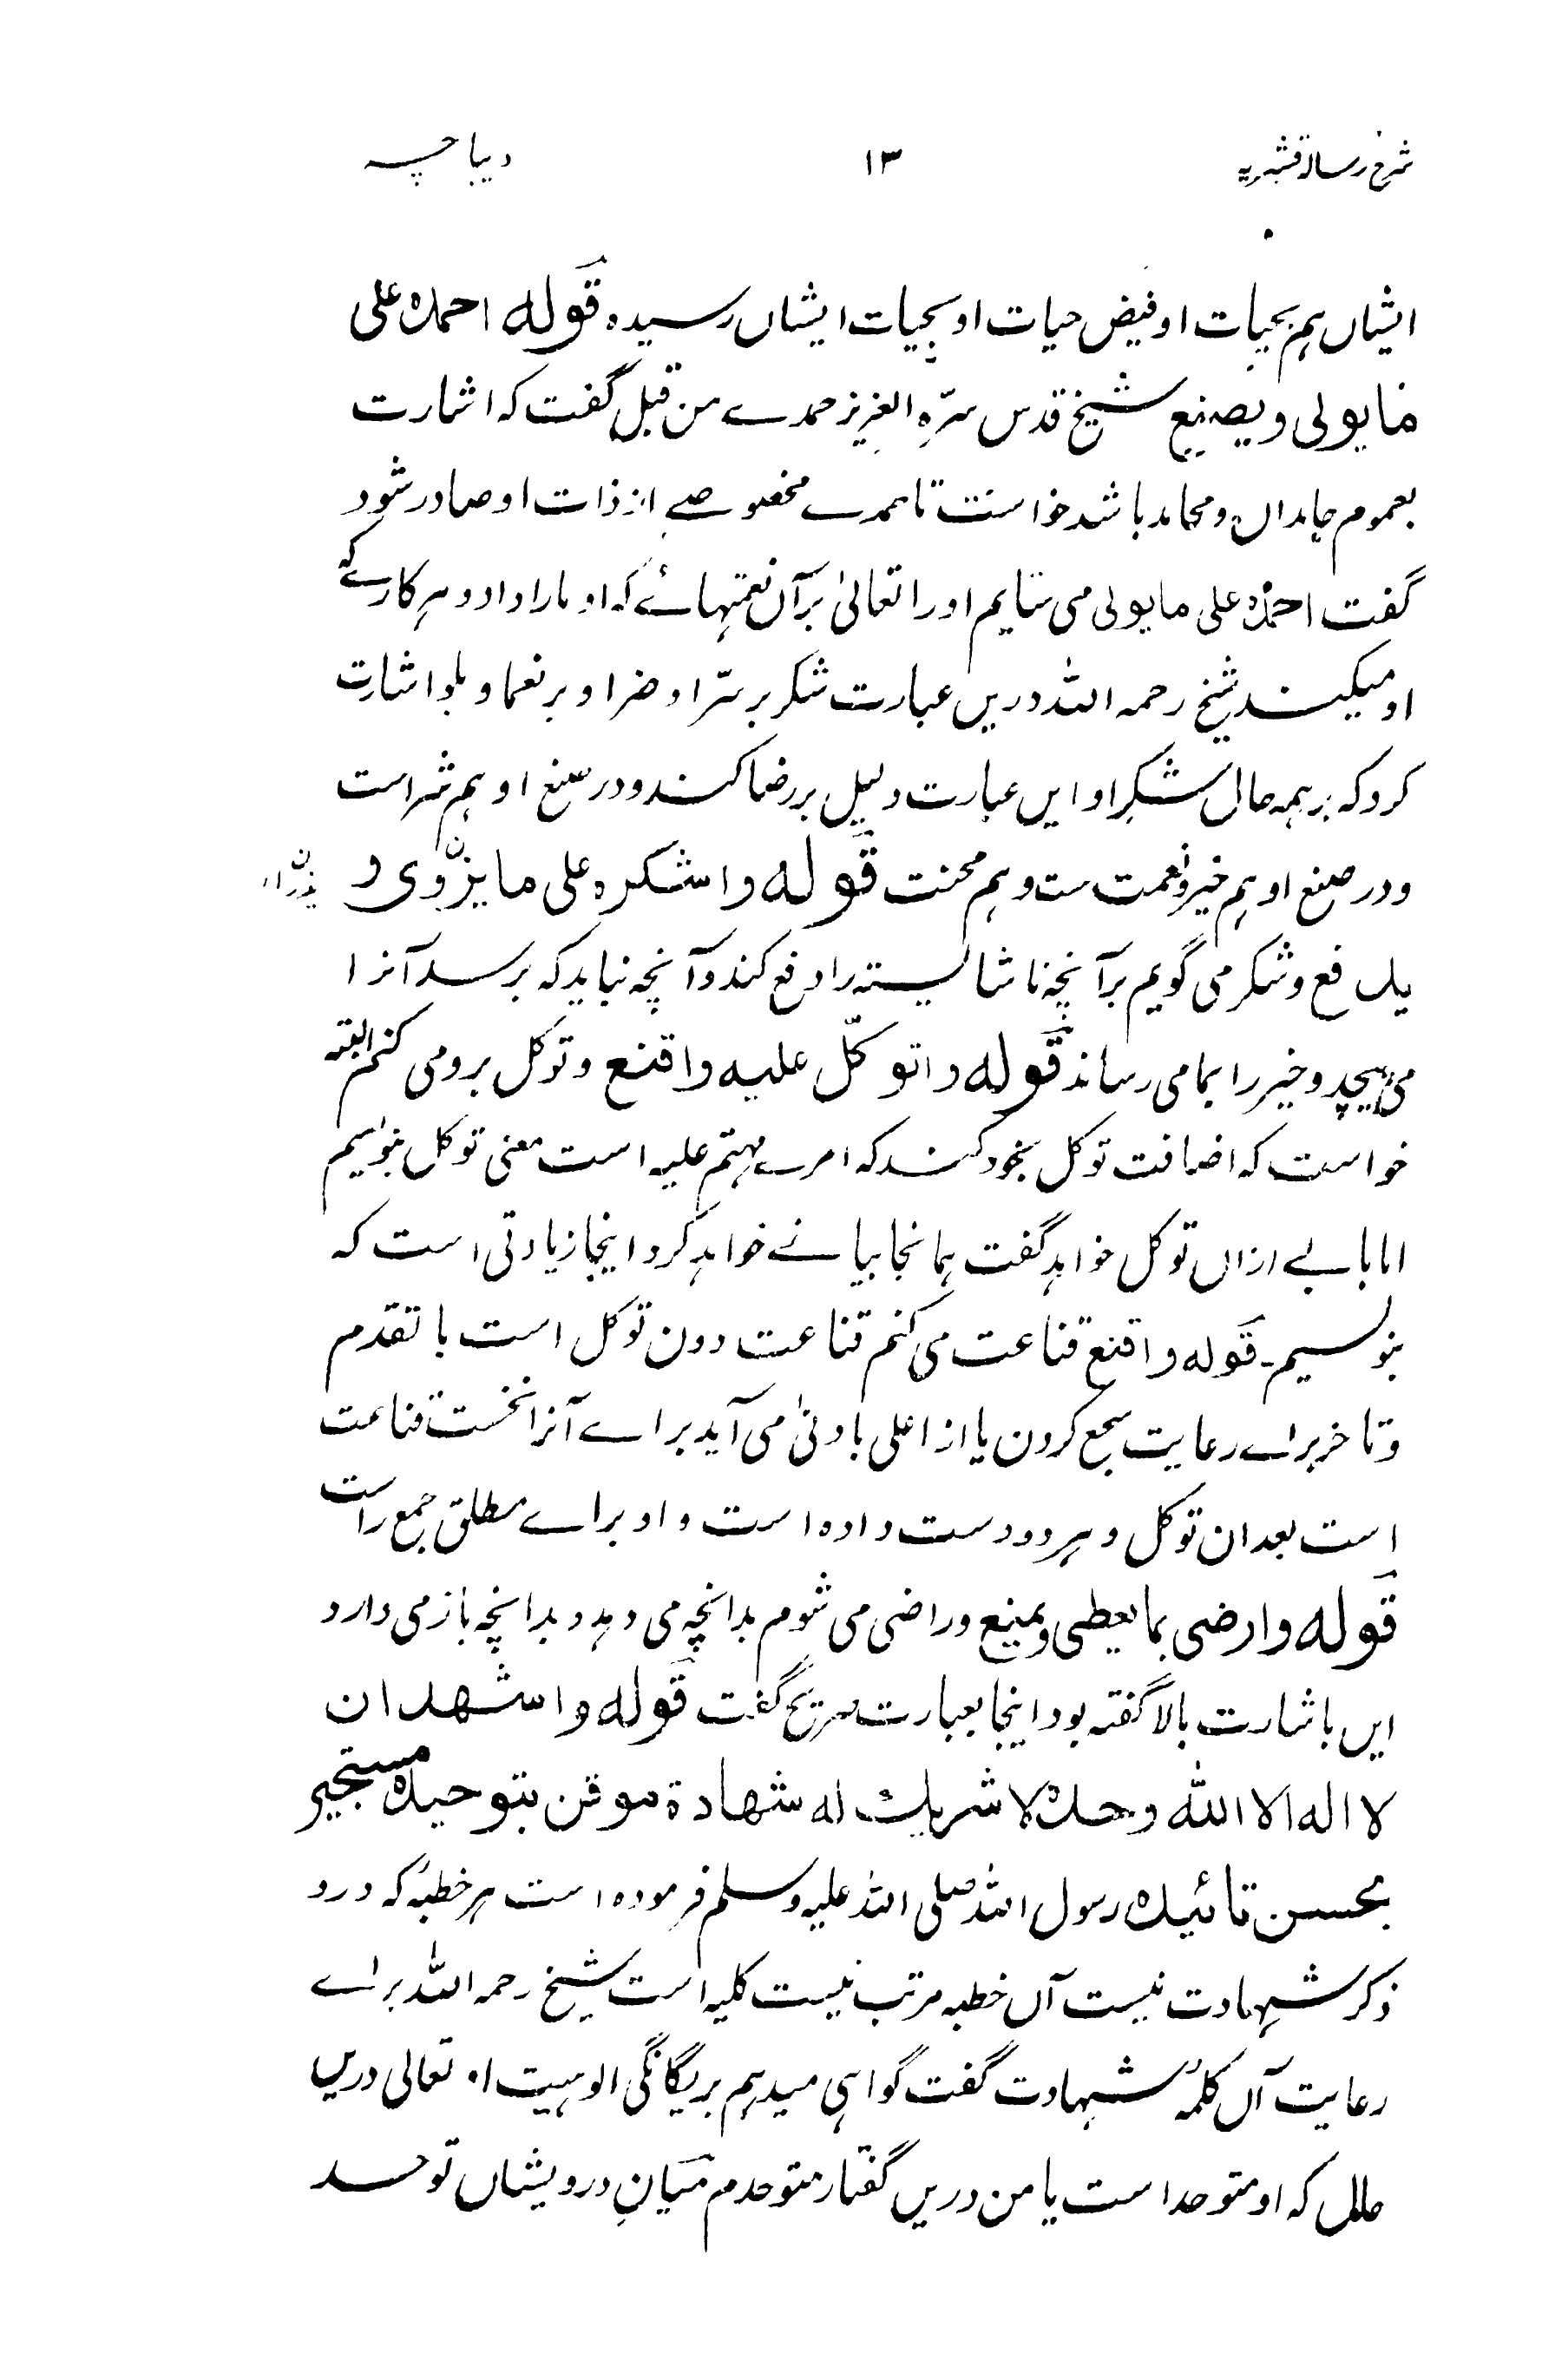 شرح رسالۂ قشیریہ ۱۳ دیباچہ
ایشاں ہم بحیات او فیض حیات او بحیات ایشاں رسیدہ قولہ احمدہ علی
مایولی ویصنع شیخ قدس سرّہ العزیز حمدے من قبل گفت کہ اشارت
بعموم حامداں و محامد باشد خواست تا حمدے مخصوصے از ذات او صادر شود
گفت احمدہ علی مایولی می ستایم اورا تعالیٰ برآں نعمتہائے کہ او مارا داد و ہر کارے کہ
او میکند شیخ رحمہ اللہ دریں عبارت شکر بر سرّا و ضرا و بر نعما و بلوا اشارت
کرد کہ بر ہمہ حال شکر او ایں عبارت دلیل بر رضا کند و در صنع او ہم شر است
و در صنع او ہم خیر و نعمت ست و ہم محنت قولہ واشکرہ علی مایزوی و
یدفع و شکر می گویم برآنچہ ناشایستہ را دفع کند و آنچہ نباید کہ برسد آنرا
می پیچد و خیر را بما می رساند قولہ واتوکّل علیہ واقنع و توکل برو می کنم البتہ
خواست کہ اضافت توکل بخود کند کہ امرے مہتم علیہ است معنی توکل بنویسیم
اما بابے ازاں توکل خواہد گفت ہمانجا بیانے خواہد کرد اینجا زیادتی است کہ
بنویسیم۔ قولہ واقنع قناعت می کنم قناعت دون توکل است با تقدم
و تاخر براے رعایت سجع کردن یا از اعلی بادنیٰ می آید براے آنرا نخست قناعت
است بعد ان توکل و ہردو دست دادہ است و او براے مطلق جمع راست
قولہ وارضی بما یعطی ویمنع و راضی می شوم بدانچہ می دہد و بدانچہ باز می دارد
ایں باشارت بالا گفتہ بود اینجا بعبارت صریح گفت قولہ واشھد ان
لا الہ الا اللہ وحدہ لا شریک لہ شھادة موقن بتوحیدہ مستجیر
بحسن تائیدہ رسول اللہ صلی اللہ علیہ وسلم فرمودہ است ہر خطبہ کہ درو
ذکر شہادت نیست آں خطبہ مرتب نیست کلیہ است شیخ رحمہ اللہ براے
رعایت آں کلمۂ شہادت گفت گواہی میدہم بر یگانگی الوہیت او تعالی دریں
حال کہ او متوحد است یا من دریں گفتار متوحدم میانِ درویشاں توحد